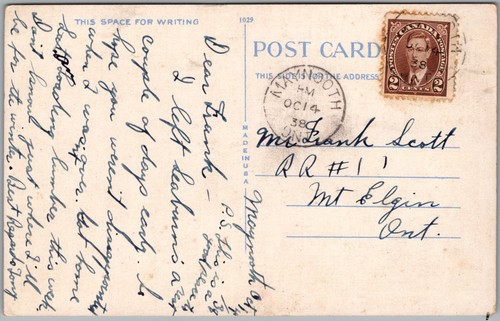 THIS SPACE FOR WRITING
1029
POST CARD
THIS SIDE IS FOR THE ADDRESS
MADE IN USA
POSTES CANADA POSTAGE
2 CENTS 2
MAYNOOTH
PM
OC 14
38
ONT
Mr. Frank Scott
RR # 1
Mt Elgin
Ont.
Maynooth
Dear Frank –
I left
couple of days early. I
hope you weren't disappointed
when I was gone. Got home
loading lumber this week
Don't know just where I'll
be for the winter. Best Regards
P.S. this is a